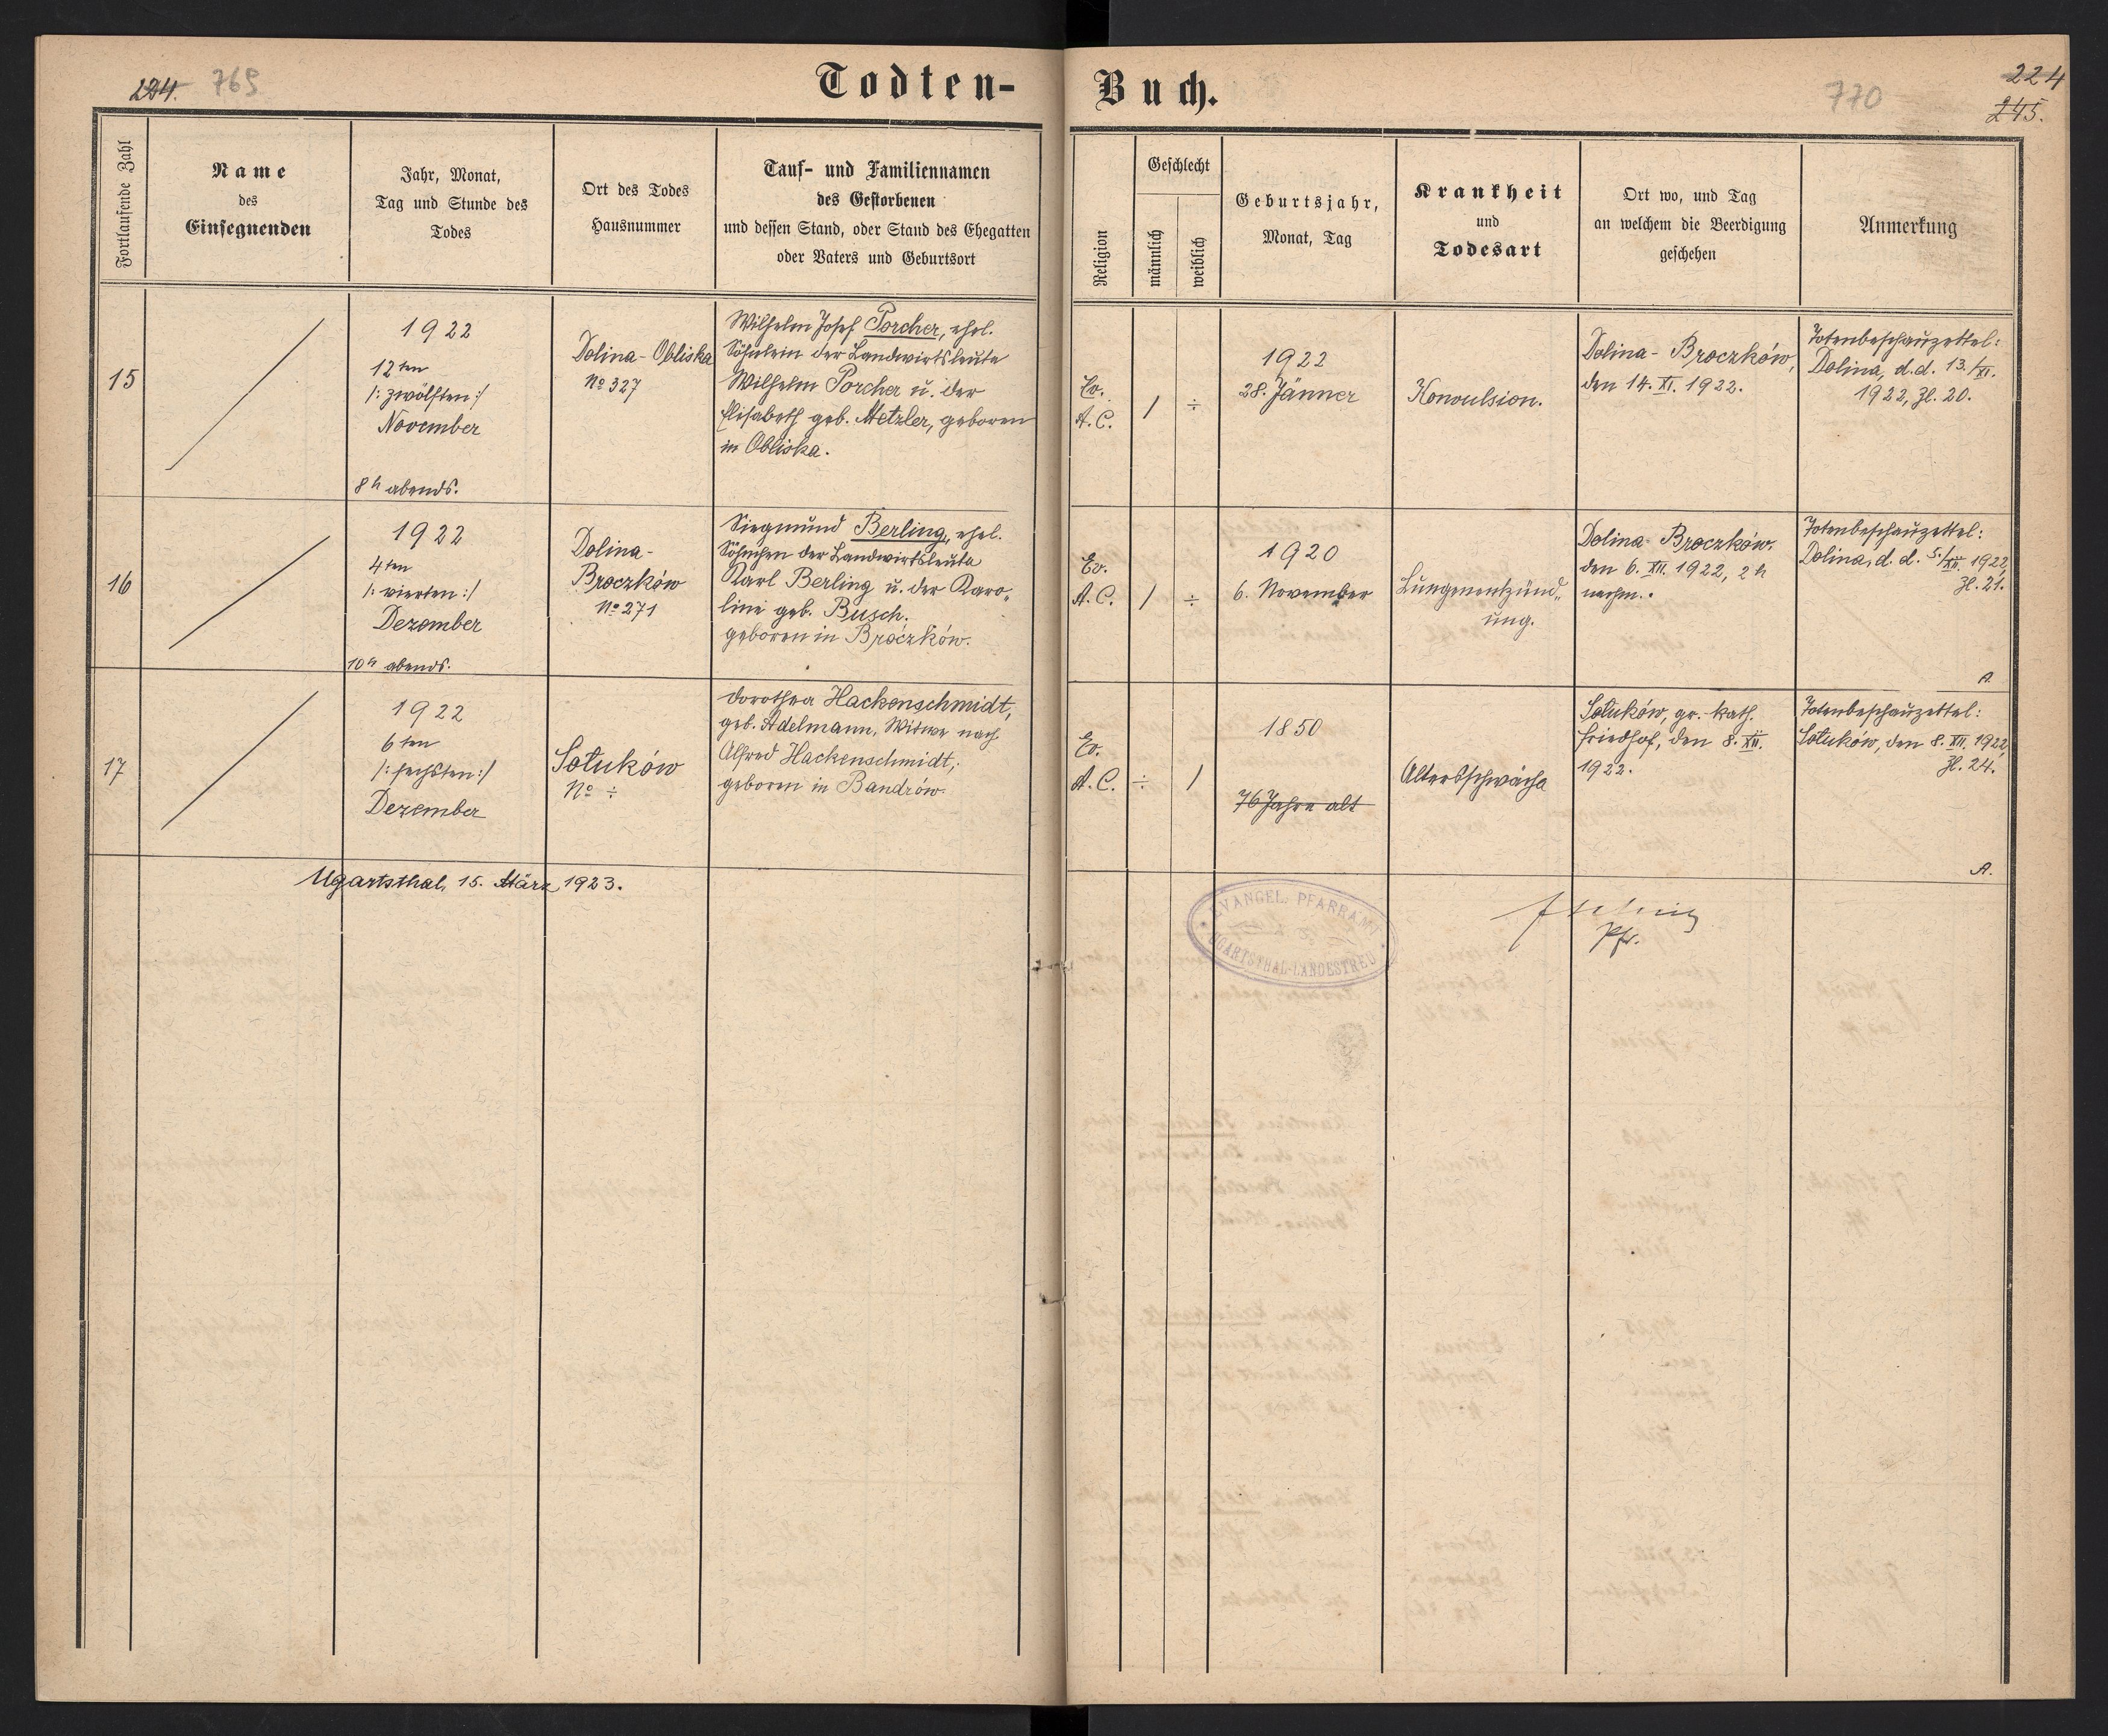 224. 769
Todten-
Buch.
770
224
245.
Fortlaufende Zahl
Name
des
Einsegnenden
Jahr, Monat,
Tag und Stunde des
Todes
Ort des Todes
Hausnummer
Tauf- und Familiennamen
des Gestorbenen
und dessen Stand, oder Stand des Ehegatten
oder Vaters und Geburtsort
Religion
Geschlecht
männlich
weiblich
Geburtsjahr,
Monat, Tag
Krankheit
und
Todesart
Ort wo, und Tag
an welchem die Beerdigung
geschehen
Anmerkung
15
1922
12ten
/: zwölften :/
November
8h abends.
Dolina-Obliska
No 327
Wilhelm Josef Porcher, ehel.
Söhnlein der Landwirtsleute
Wilhelm Porcher u. der
Elisabeth geb. Metzler, geboren
in Obliska.
Ev.
A.C.
/
÷
1922
28. Jänner
Konvulsion.
Dolina-Broczków,
den 14. XI. 1922.
Totenbeschauzettel:
Dolina, d.d. 13./XI.
1922, Zl. 20.
16
1922
4ten
/: vierten :/
Dezember
10h abends.
Dolina-
Broczków
No 271
Siegmund Berling, ehel.
Söhnchen der Landwirtsleute
Karl Berling u. der Karo„
line geb. Busch.
geboren in Broczków.
Ev.
A.C.
/
÷
1920
6. November
Lungenentzünd„
ung.
Dolina-Broczków.
den 6. XII. 1922, 2h
nachm.
Totenbeschauzettel:
Dolina, d. d. 5./XII. 1922,
Zl. 21.
A.
17
1922
6ten
/: sechsten :/
Dezember
Sołuków
No ÷
Dorothea Hackenschmidt,
geb. Adelmann, Witwe nach
Alfred Hackenschmidt,
geboren in Bandrów.
Ev.
A.C.
÷
/
1850
76 Jahre alt
Altersschwäche
Sołuków, gr.-kath.
Friedhof, den 8. XII.
1922.
Totenbeschauzettel:
Sołuków, den 8. XII. 1922,
Zl. 24.
A.
Ugartsthal, 15. März 1923.
EVANGEL. PFARRAMT
UGARTSTHAL-LANDESTREU
Pfr.